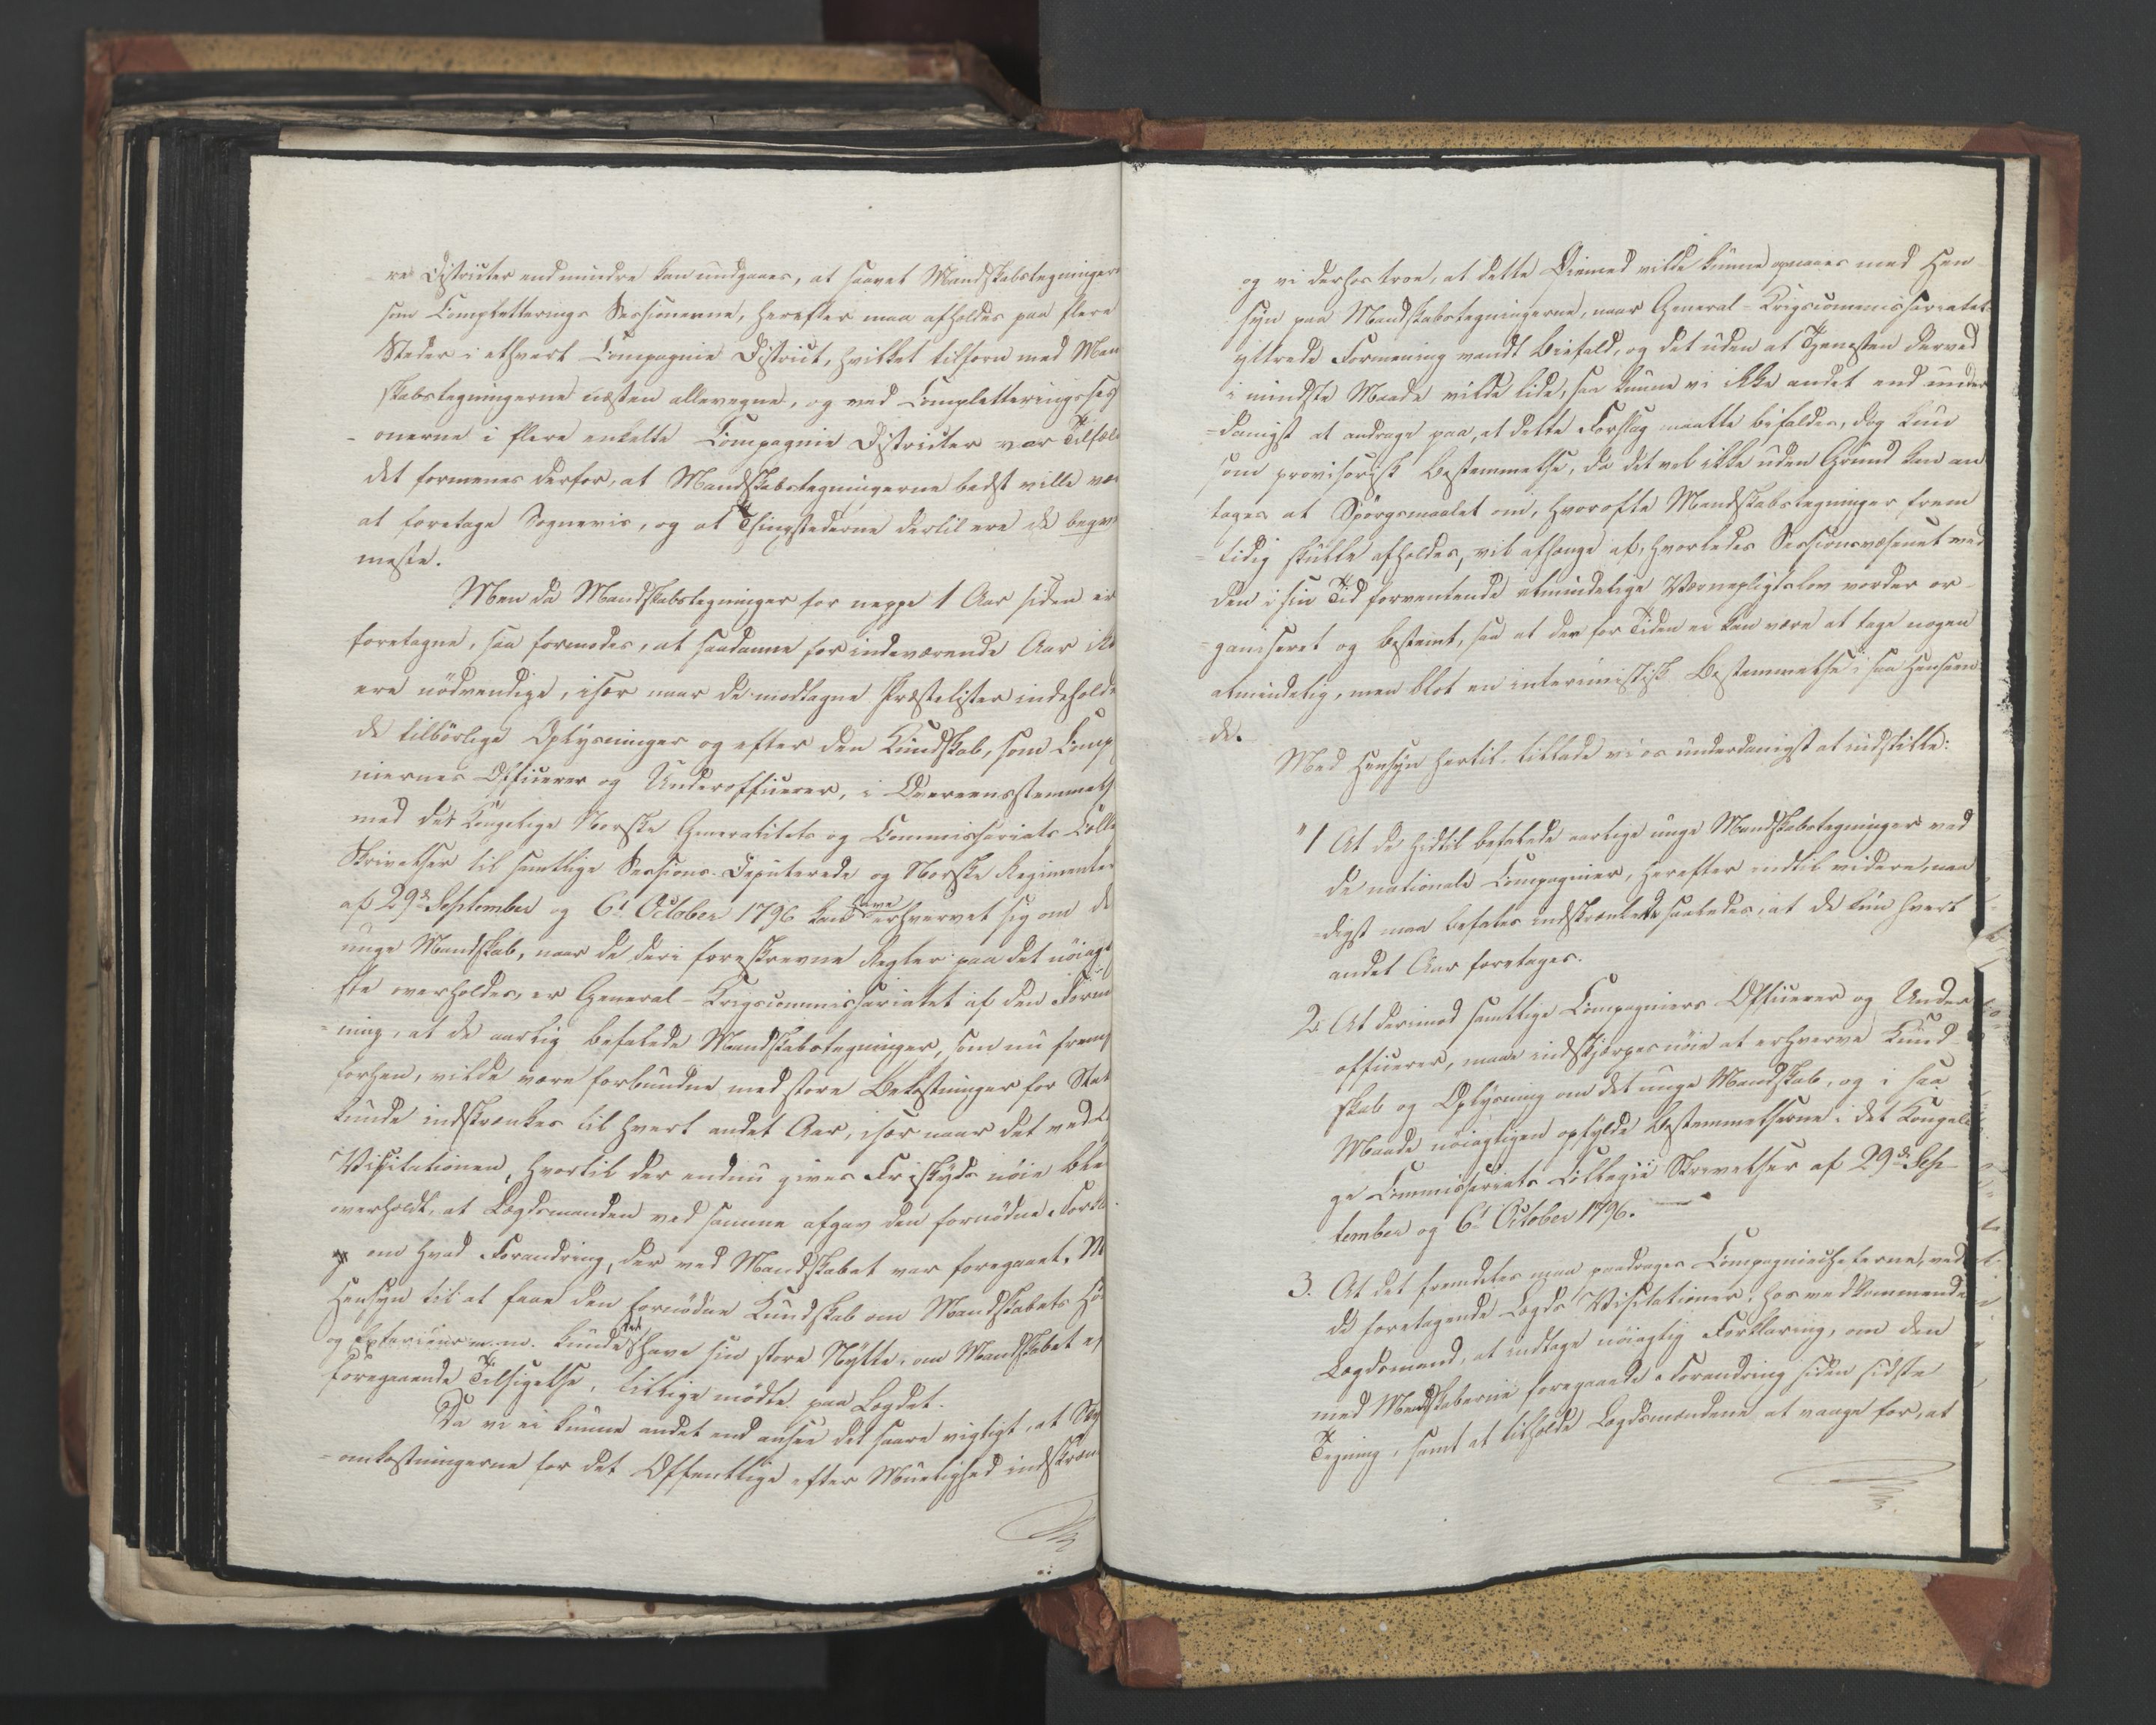 re Districter endmindre kan undgaaes, at saavel Mandskabstegninger
som Completterings Sessionerne, herefter maa afholdes paa flere
Steder i ethvert Compagnie District, hvilket tilforn med Man
skabstegningerne næsten allevegne, og ved Completteringsses
-onerne i flere enkelte Compagnie Districter var Tilfæl
det formenes derfor, at Mandskabstegningerne bedst ville væ
at foretage Sogneviis, og at Thingstederne dertil ere de beqve
meste.
Men da Mandskabstegninger for neppe 1 Aar siden er
foretagne, saa formodes, at saadanne for indeværende Aar ik
ere nödvendige, især naar de modtagne Præstelister indeholde
de tilbörlige Oplysninger og efter den Kundskab, som Comp
niernes Officerer og Underofficerer, i Overeensstemmels
med det Kongelige Norske Generalitets og Commissariats Colle
Skrivelser til samtlige Sessions-Deputerede og Norske Regimenter
af 29de September og 6te October 1796 kan have erhvervet sig om de
unge Mandskab, naar de deri foreskrevne Regler paa det nöiag
ste overholdes, er General-Krigscommissariatet af den Form
-ning, at de aarlig befalede Mandskabstegninger, som nu frem
forhen, vilde være forbundne med store Bekostninger for Stat
kunde indskrænkes til hvert andet Aar, især naar det ved L
Visitationen, hvortil der endnu gives Friskyds nöie blev
overholdt, at Lægdsmanden ved samme afgav den fornödne Forkl
om hvad Forandring, der ved Mandskabet var foregaaet. M
Hensyn til at faae den fornödne Kundskab om Mandskabets Hö
og Exterieur m.m. kunde det have sin store Nytte, om Mandskabet ef
foregaaende Tilsigelse, tillige mödte paa Lægdet.
Da vi ei kunne andet end ansee det saare vigtigt, at
-omkostningerne for det Offentlige efter Muelighed indskræn
og vi derhos troe, at dette Øiemed vilde kunne opnaaes med Hen
syn paa Mandskabstegningerne, naar General-Krigscommissariatet
yttrede Formening vandt Biefald, og det uden at Tjenesten derved
i mindste Maade vilde lide, saa kunne vi ikke andet end under
-danigst at andrage paa, at dette Forslag maatte bifaldes, dog kun
som provisorisk Bestemmelse, da det vel ikke uden Grund kan an
tages at Spörgsmaalet om, hvorofte Mandskabstegninger frem
-tidig skulle afholdes, vil afhænge af, hvorledes Sessionsvæsenet ved
den i sin Tid forventende almindelige Værnepligtslov vorder or-
-ganiseret og bestemt, saa at der for Tiden ei kan være at tage nogen
almindelig, men blot en interimistisk Bestemmelse i saa Henseen
de.
Med Hensyn hertil tillade vi os underdanigst at indstille:
"1 At de hidtil befalede aarlige unge Mandskabstegninger ved
de nationale Compagnier, herefter indtil videre, naa
-digst maa befales indskrænkede saaledes, at de kun hvert
andet Aar foretages.
2. At derimod samtlige Compagniers Officerer og Under
officerer, maae indskjærpes nöie at erhverve Kund
skab og Oplysning om det unge Mandskab, og i saa
Maade nöiagtigen opfylde Bestemmelserne i det Kongeli
ge Commissariats Collegii Skrivelser af 29de Sep
tember og 6te October 1796.
3. At det fremdeles maa paadrages Compagniecheferne, ved
de foretagende Lægds Visitationer, hos vedkommende
Lægdsmand, at indtage nöiagtig Forklaring, om den
med Mandskaberne foregaaede Forandring siden sidste
Tegning, samt at tilholde Lægdsmændene at vaage for, at